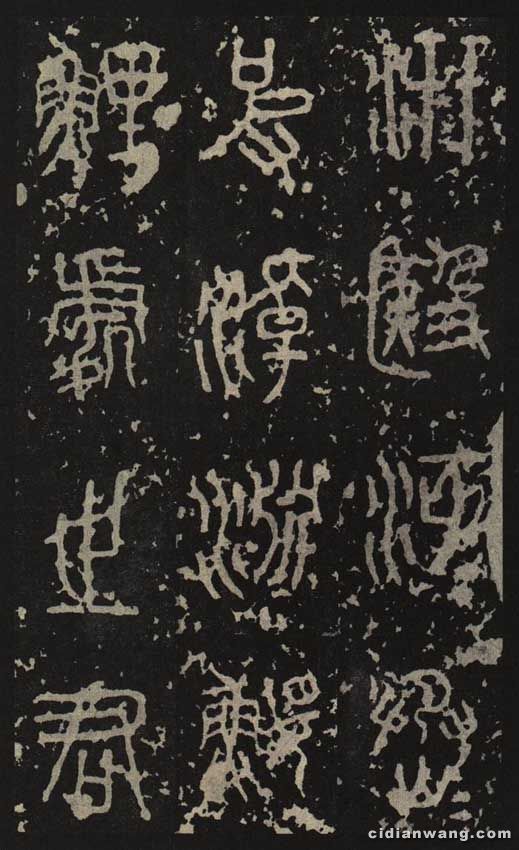 汧殹沔丞
皮淖淵鰋
鯉處之君
cidianwang.com